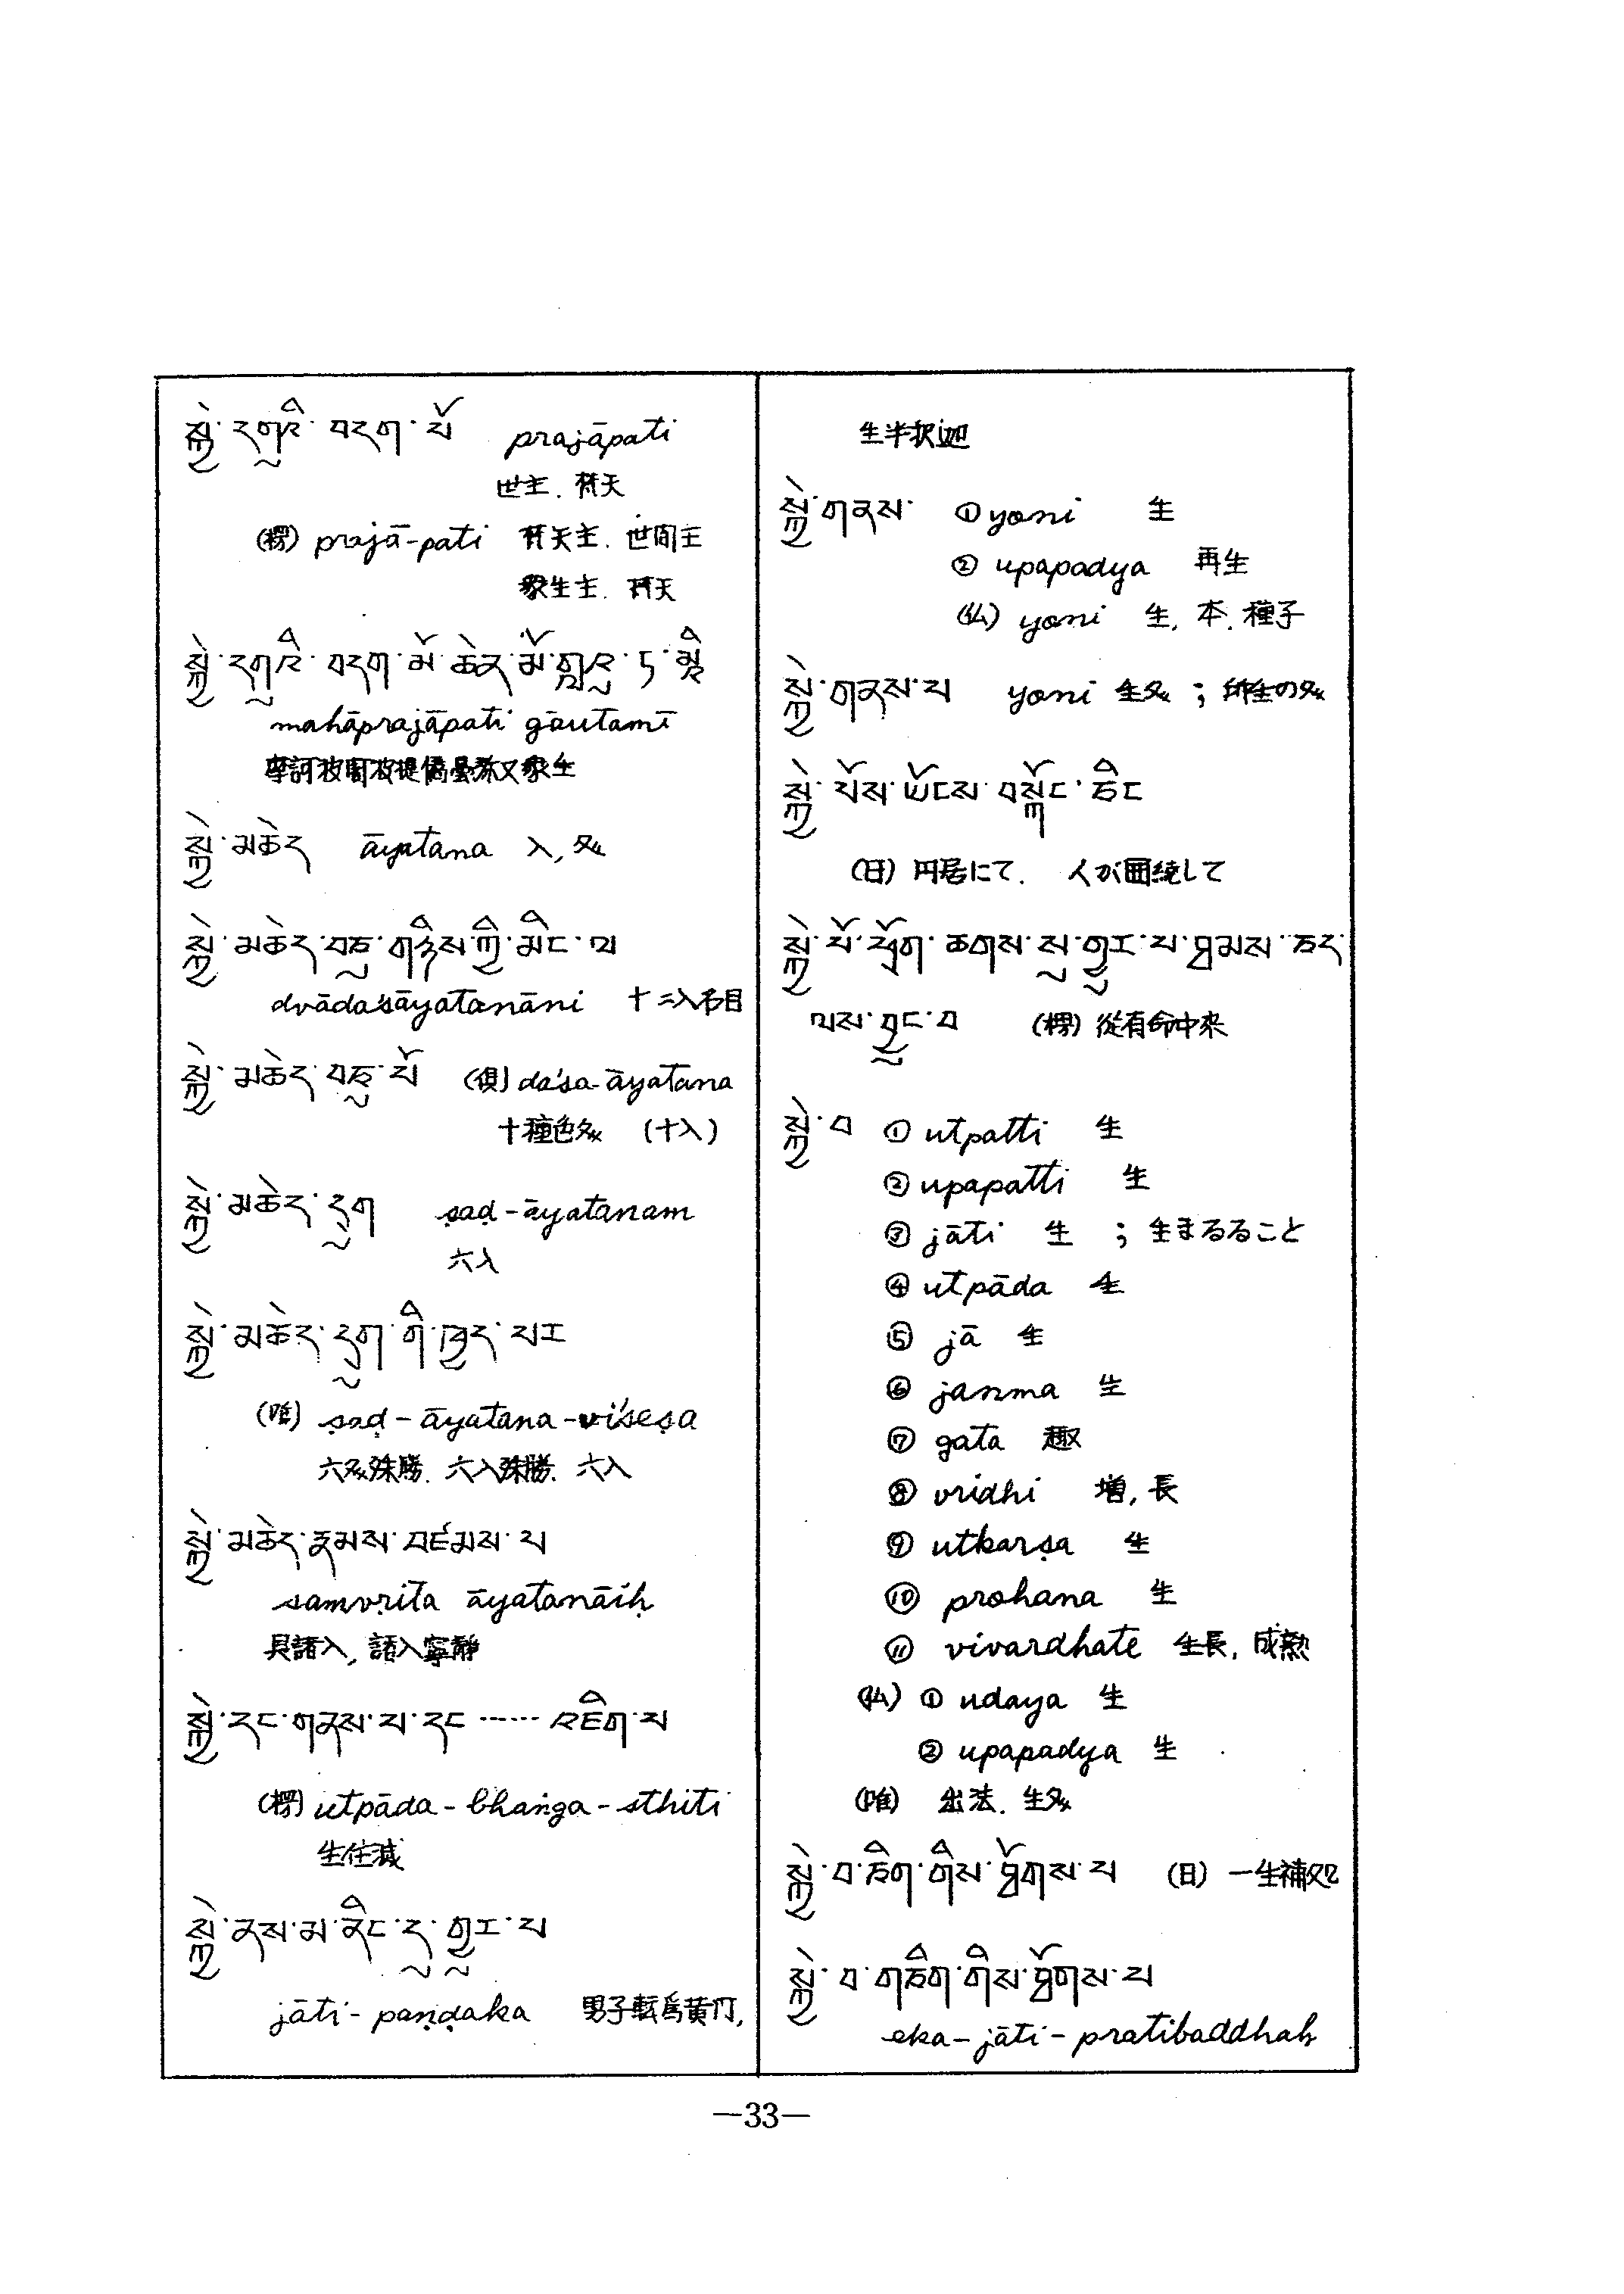 སྐྱེ་དགུའི་བདག་པོ prajāpati
世主. 梵天
(楞) prajā-pati 梵天主. 世间主
衆生主. 梵天
སྐྱེ་དགུའི་བདག་མོ་ཆེན་མོ
mahāprajāpati gautamī
衆生
སྐྱེ་མཆེད āyatana 入, 処
སྐྱེ་མཆེད་བཅུ་གཉིས་ཀྱི་མིང་ལ
dvādaśāyatanāni 十二入名目
སྐྱེ་མཆེད་བཅུ་པོ (俱) daśa-āyatana
十種色処 (十入)
སྐྱེ་མཆེད་དྲུག ṣaḍ-āyatanam
六入
སྐྱེ་མཆེད་དྲུག་གི་ཁྱད་པར
(唯) ṣaḍ-āyatana-viśeṣa
六処殊勝. 六入殊勝. 六入
སྐྱེ་མཆེད་རྣམས་བཛམས་པ
samvṛita āyatanāiḥ
具諸入, 諸入寧静
སྐྱེ་དང་གནས་པ་དང་……འཇིག་པ
(楞) utpāda-bhaṅga-sthiti
生住滅
སྐྱེ་ནས་མ་ནིང་དུ་གྱུར་པ
jāti-paṇḍaka 男子転為黄门,
生半択迦
སྐྱེ་གནས་ ① yoni 生
② upapadya 再生
(仏) yoni 生, 本. 種子
སྐྱེ་གནས་པ yoni 生処 ; 生の処
སྐྱེ་པོས་ཡོངས་བསྐོང་ཅིང
(日) 円居にて. 人が囲繞して
སྐྱེ་པོ་ཕྲོག་ཆགས་སུ་གྱུར་པ་ཐམས་ཅད་
ལས་བྱུང་བ (楞) 從有命中来
སྐྱེ་བ ① utpatti 生
② upapatti 生
③ jāti 生 ; 生まるること
④ utpāda 生
⑤ jā 生
⑥ janma 生
⑦ gata 趣
⑧ vridhi 増, 長
⑨ utkarṣa 生
⑩ prohana 生
⑪ vivardhate 生長, 成熟
(仏) ① udaya 生
② upapadya 生
(唯) 出法. 生処
སྐྱེ་བ་ཅིག་གིས་ཐོགས་པ (日) 一生補処
སྐྱེ་བ་གཅིག་གིས་ཐོགས་པ
eka-jāti-pratibaddhaḥ
—33—